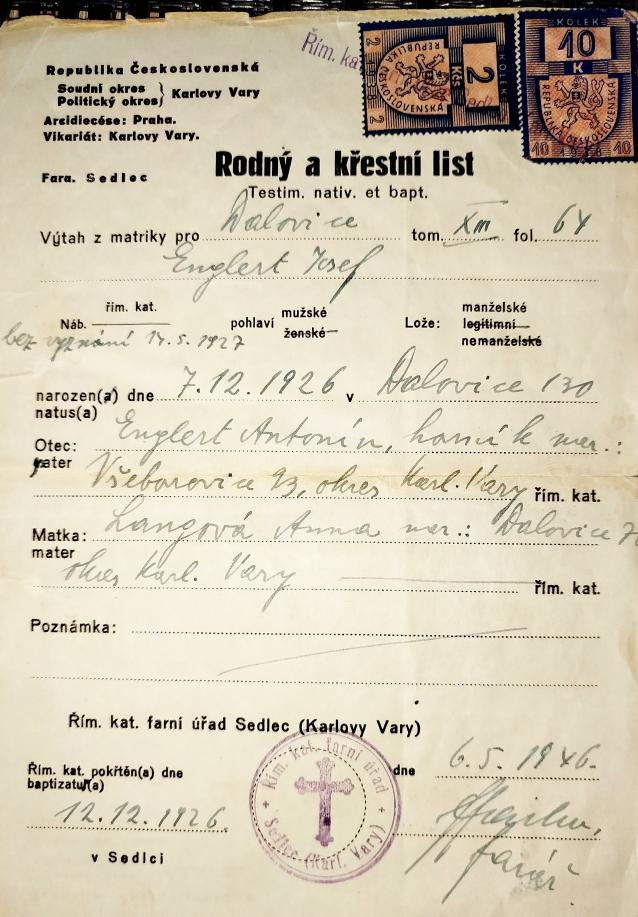 Republika Československá
Soudní okres
Politický okres } Karlovy Vary
Arcidiecése: Praha.
Vikariát: Karlovy Vary.
Fara. Sedlec
Řím. ka
2 KČS KOLEK REPUBLIKA ČESKOSLOVENSKÁ 2
KOLEK 10 K REPUBLIKA ČESKOSLOVENSKÁ 10 10
Rodný a křestní list
Testim. nativ. et bapt.
Výtah z matriky pro Dalovice tom. XIII fol. 64
Englert Josef
Náb. řím. kat. pohlaví mužské ženské Lože: manželské legitimní nemanželské
bez vyznání 14.5.1927
narozen(a) dne 7.12.1926 v Dalovice 130
natus(a)
Otec: Englert Antonín, horník nar.:
pater Všeborovice 93, okres Karl. Vary řím. kat.
Matka: Langová Anna nar.: Dalovice
mater
okres Karl. Vary řím. kat.
Poznámka:
Řím. kat. farní úřad Sedlec (Karlovy Vary)
Řím. kat. pokřtěn(a) dne
baptizatus(a)
dne 6.5.1946.
12.12.1926.
v Sedlci
+ Řím. kat. farní úřad + Sedlec (Karl. Vary)
farář